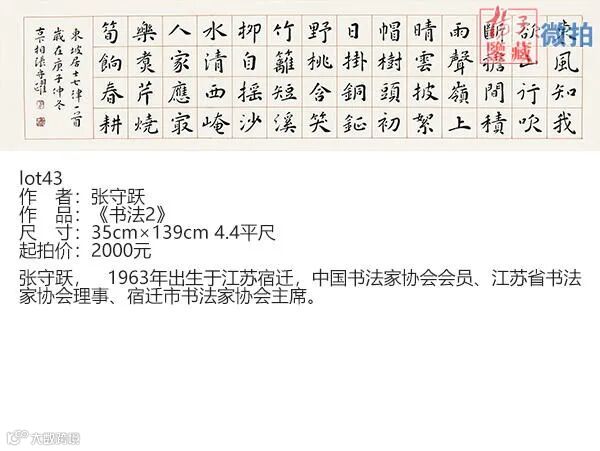 東風知我
欲山行吹
斷簷間積
雨聲嶺上
晴雲披絮
帽樹頭初
日掛銅鉦
野桃含笑
竹籬短溪
柳自搖沙
水清西崦
人家應冣
樂煮芹燒
筍餉春耕
東坡居士七律一首
歲在庚子仲冬
張守躍
子
鑒藏
微拍
lot43
作 者：张守跃
作 品：《书法2》
尺 寸：35cm×139cm 4.4平尺
起拍价：2000元
张守跃， 1963年出生于江苏宿迁，中国书法家协会会员、江苏省书法
家协会理事、宿迁市书法家协会主席。
大数跨境